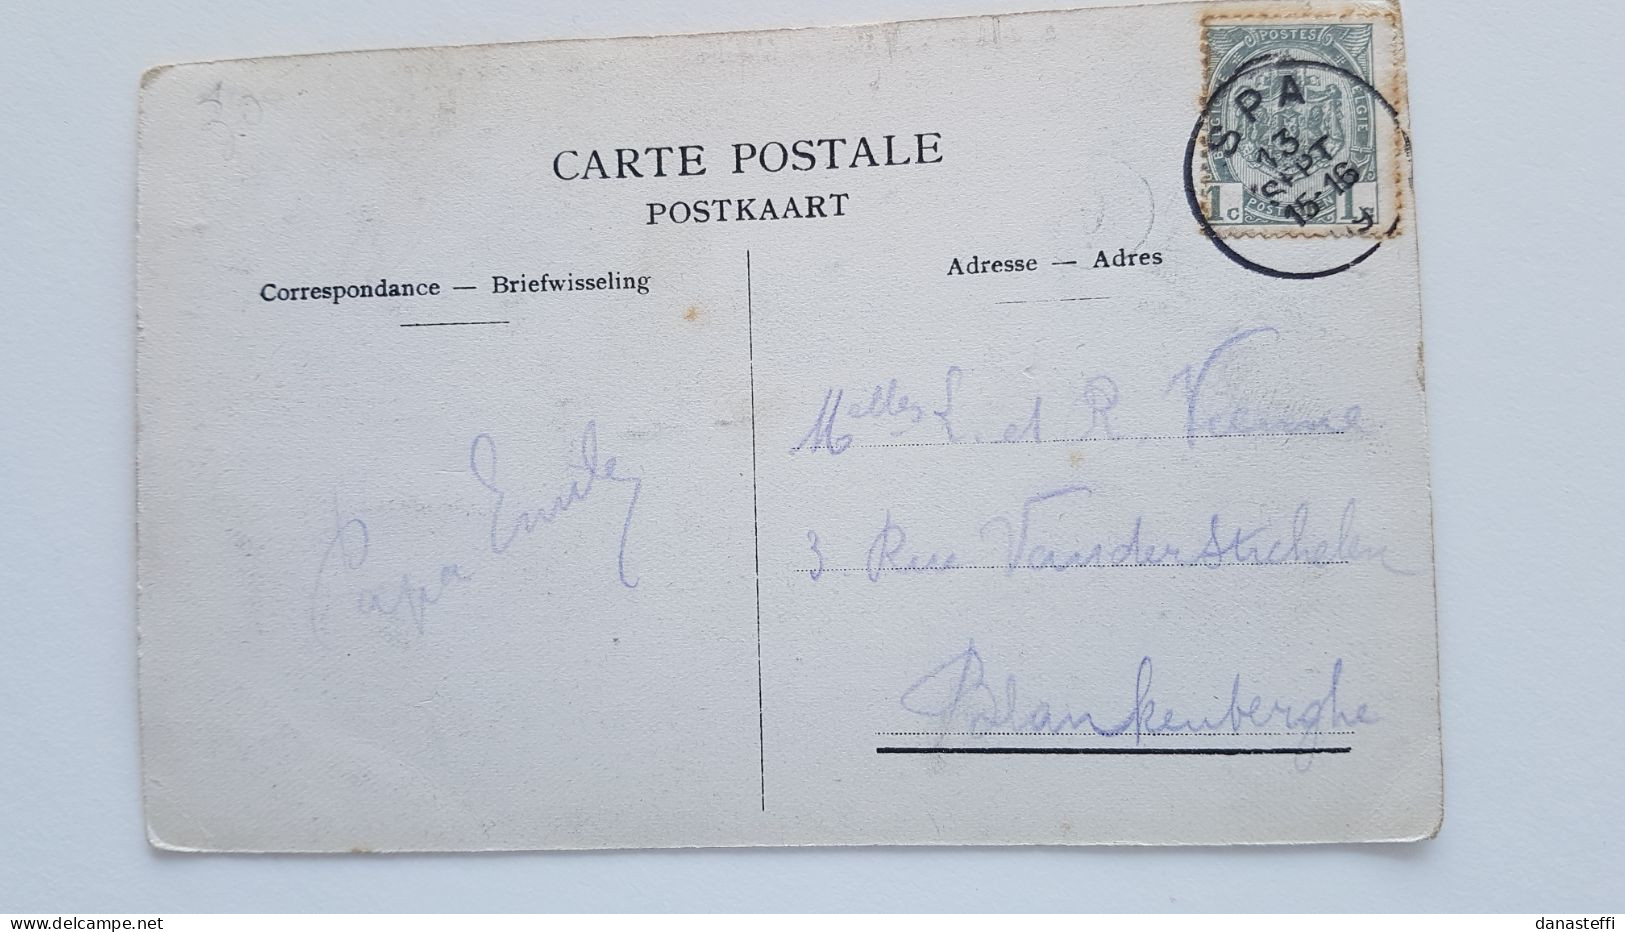 CARTE POSTALE
POSTKAART
Correspondance — Briefwisseling
Adresse — Adres
POSTES
BELGIE
1 c
POSTERIJEN
1
SPA
13
SEPT
15-16
Papa Emile
Melles L. et R.
3. Rue Vander Stichelen
Blankenberghe
www.delcampe.net
danasteffi